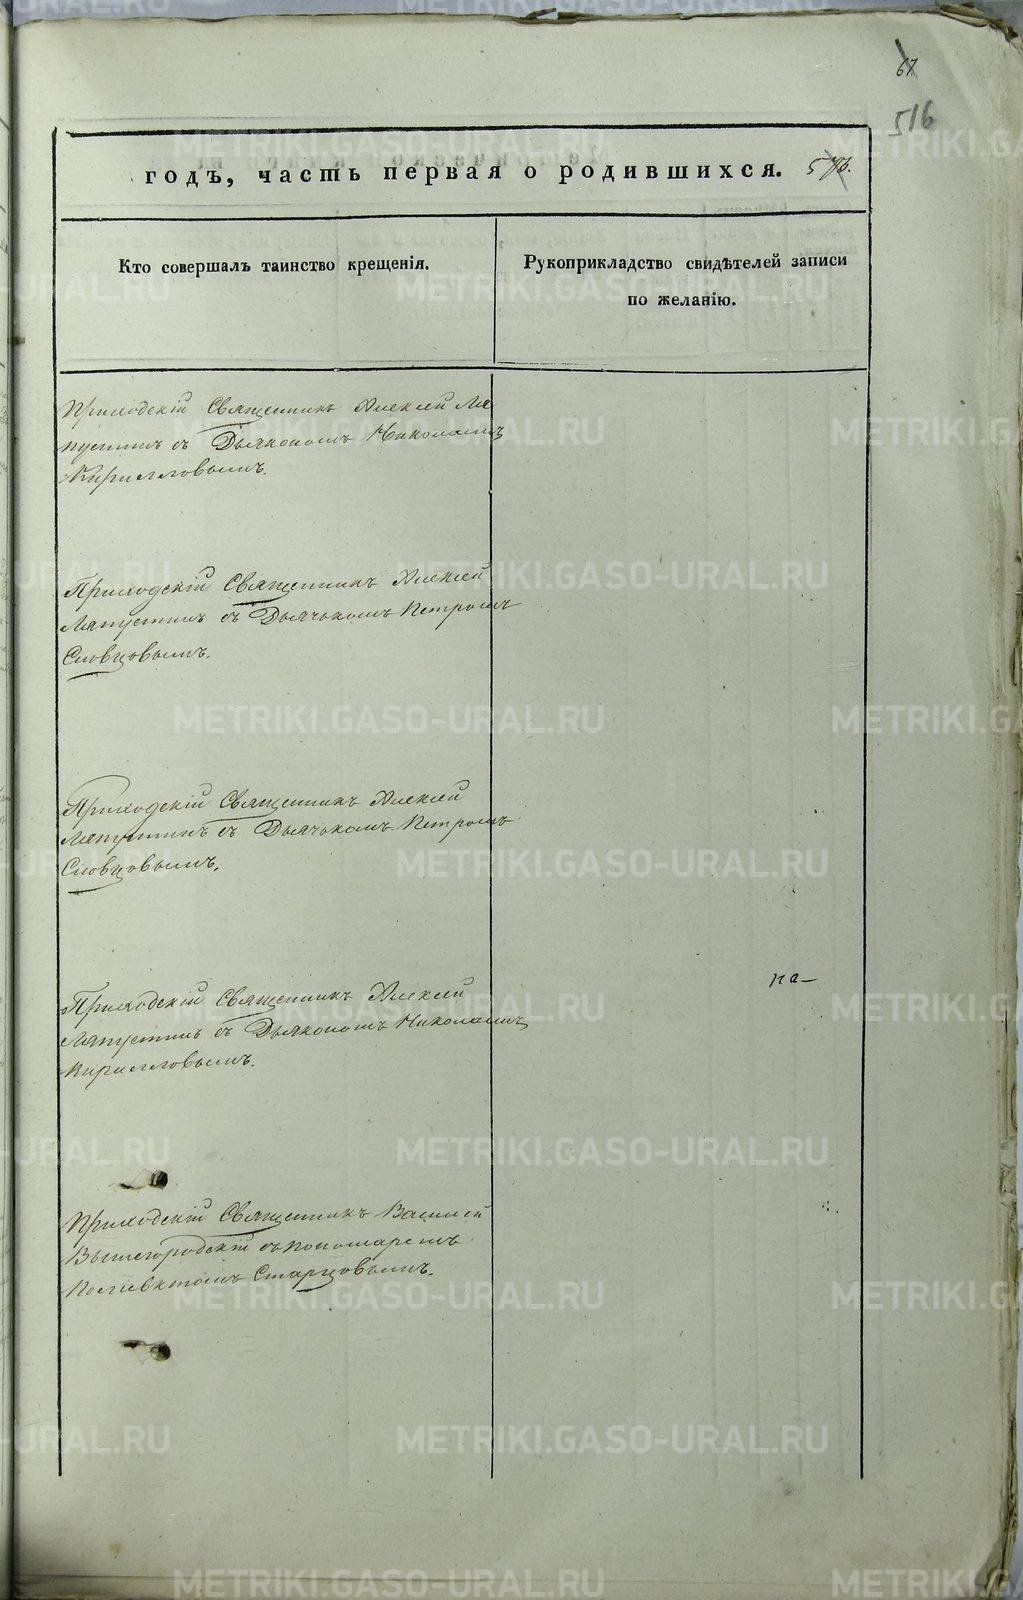 67
516
годъ, часть первая о родившихся. 576.
Кто совершалъ таинство крещенія.
Рукоприкладство свидѣтелей записи
по желанію.
Приходскій Священникъ Алексей Ля
пустинъ съ Дьякономъ Николаемъ
Кирилловымъ.
Приходскій Священникъ Алексей
Ляпустинъ съ Дьячькомъ Петромъ
Словцовымъ.
Приходскій Священникъ Алексей
Ляпустинъ съ Дьячькомъ Петромъ
Словцовымъ.
на-
Приходскій Священникъ Алексей
Ляпустинъ съ Дьякономъ Николаемъ
Кирилловымъ.
Приходскій Священникъ Василей
Вышегородскій съ пономаремъ
Полиевктомъ Старцовымъ.
METRIKI.GASO-URAL.RU